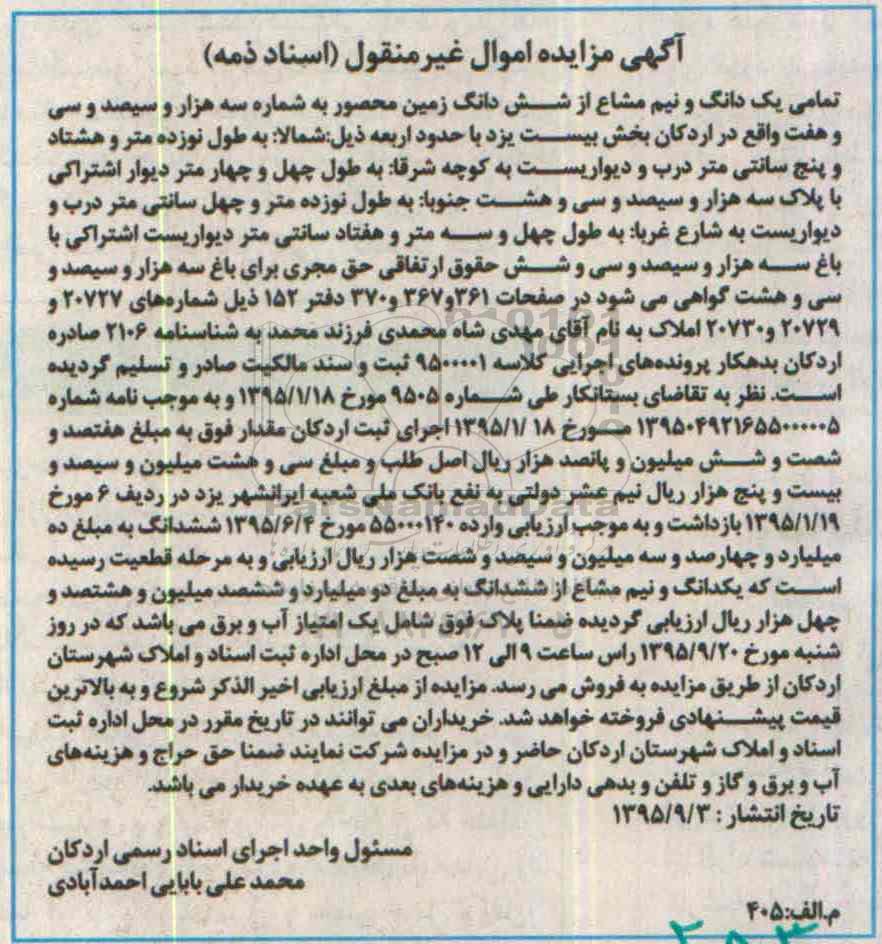 آگهی مزایده اموال غیرمنقول (اسناد ذمه)
تمامی یک دانگ و نیم مشاع از شش دانگ زمین محصور به شماره سه هزار و سیصد و سی
و هفت واقع در اردکان بخش بیست یزد با حدود اربعه ذیل:شمالا: به طول نوزده متر و هشتاد
و پنج سانتی متر درب و دیواریست به کوچه شرقا: به طول چهل و چهار متر دیوار اشتراکی
با پلاک سه هزار و سیصد و سی و هشت جنوبا: به طول نوزده متر و چهل سانتی متر درب و
دیواریست به شارع غربا: به طول چهل و سه متر و هفتاد سانتی متر دیواریست اشتراکی با
باغ سه هزار و سیصد و سی و شش حقوق ارتفاقی حق مجری برای باغ سه هزار و سیصد و
سی و هشت گواهی می شود در صفحات ۳۶۱و۳۶۷ و۳۷۰ دفتر ۱۵۲ ذیل شماره‌های ۲۰۷۲۷ و
۲۰۷۲۹ و۲۰۷۳۰ املاک به نام آقای مهدی شاه محمدی فرزند محمد به شناسنامه ۲۱۰۶ صادره
اردکان بدهکار پرونده‌های اجرایی کلاسه ۹۵۰۰۰۰۱ ثبت و سند مالکیت صادر و تسلیم گردیده
است. نظر به تقاضای بستانکار طی شماره ۹۵۰۵ مورخ ۱۳۹۵/۱/۱۸ و به موجب نامه شماره
۱۳۹۵۰۴۹۲۱۶۵۵۰۰۰۰۰۵ مورخ ۱۸ /۱۳۹۵/۱ اجرای ثبت اردکان مقدار فوق به مبلغ هفتصد و
شصت و شش میلیون و پانصد هزار ریال اصل طلب و مبلغ سی و هشت میلیون و سیصد و
بیست و پنج هزار ریال نیم عشر دولتی به نفع بانک ملی شعبه ایرانشهر یزد در ردیف ۶ مورخ
۱۳۹۵/۱/۱۹ بازداشت و به موجب ارزیابی وارده ۵۵۰۰۰۱۴۰ مورخ ۱۳۹۵/۶/۴ ششدانگ به مبلغ ده
میلیارد و چهارصد و سه میلیون و سیصد و شصت هزار ریال ارزیابی و به مرحله قطعیت رسیده
است که یکدانگ و نیم مشاع از ششدانگ به مبلغ دو میلیارد و ششصد میلیون و هشتصد و
چهل هزار ریال ارزیابی گردیده ضمنا پلاک فوق شامل یک امتیاز آب و برق می باشد که در روز
شنبه مورخ ۱۳۹۵/۹/۲۰ راس ساعت ۹ الی ۱۲ صبح در محل اداره ثبت اسناد و املاک شهرستان
اردکان از طریق مزایده به فروش می رسد. مزایده از مبلغ ارزیابی اخیر الذکر شروع و به بالاترین
قیمت پیشنهادی فروخته خواهد شد. خریداران می توانند در تاریخ مقرر در محل اداره ثبت
اسناد و املاک شهرستان اردکان حاضر و در مزایده شرکت نمایند ضمنا حق حراج و هزینه‌های
آب و برق و گاز و تلفن و بدهی دارایی و هزینه‌های بعدی به عهده خریدار می باشد.
تاریخ انتشار : ۱۳۹۵/۹/۳
مسئول واحد اجرای اسناد رسمی اردکان
محمد علی بابایی احمدآبادی
م.الف:۴۰۵